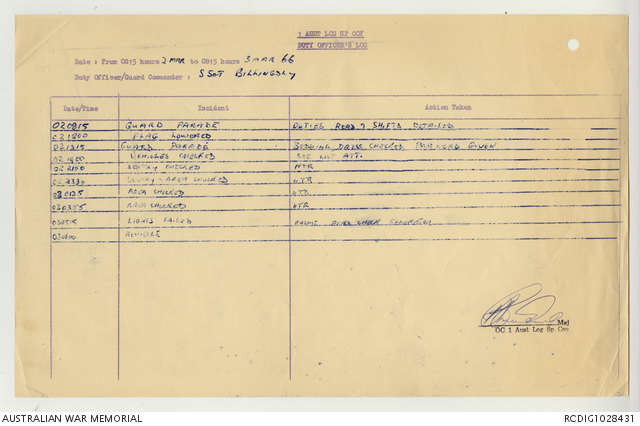 1 AUST LOG SP COY
DUTY OFFICER'S LOG
Date : From 0815 hours 2 MAR to 0815 hours 3 MAR 66
Duty Officer/Guard Commander : SSGT BILLINGSLY
Date/Time Incident Action Taken
020815 GUARD PARADE DUTIES READ & SHIFTS DETAILED
021800 FLAG LOWERED
021815 GUARD PARADE DRESS CHECKED PASSWORD GIVEN
VEHICLES CHECKED SEE LIST ATT.
CHECKED NTR
AREA CHECKED NTR
030125 AREA CHECKED NTR
030355 AREA CHECKED NTR
LIGHTS FAILED
030600 REVEILLE
Maj
OC 1 Aust Log Sp Coy
AUSTRALIAN WAR MEMORIAL
RCDIG1028431